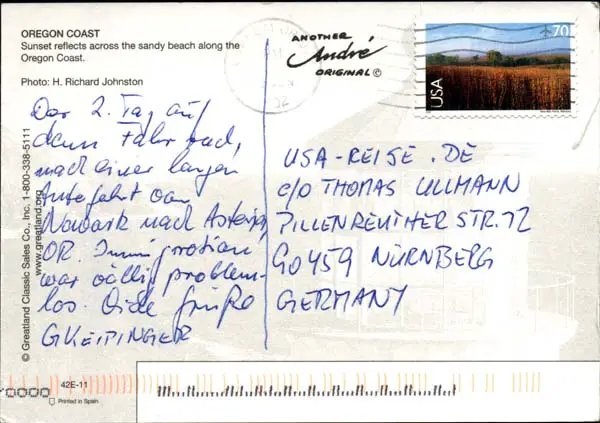 OREGON COAST
Sunset reflects across the sandy beach along the
Oregon Coast.
Photo: H. Richard Johnston
Der 2. Tag auf
dem Fahrrad,
nach einer langen
Autofahrt von
Newark nach Astoria,
OR. Immigration
war völlig problem-
los. Viele Grüße
GKEIPINGER
© Greatland Classic Sales Co., Inc. 1-800-338-5111
www.greatland.org
42E-11
Printed in Spain
ANOTHER
André
ORIGINAL ©
70
USA
USA-REISE.DE
c/o THOMAS ULLMANN
PILLENREUTHER STR. 72
90459 NÜRNBERG
GERMANY